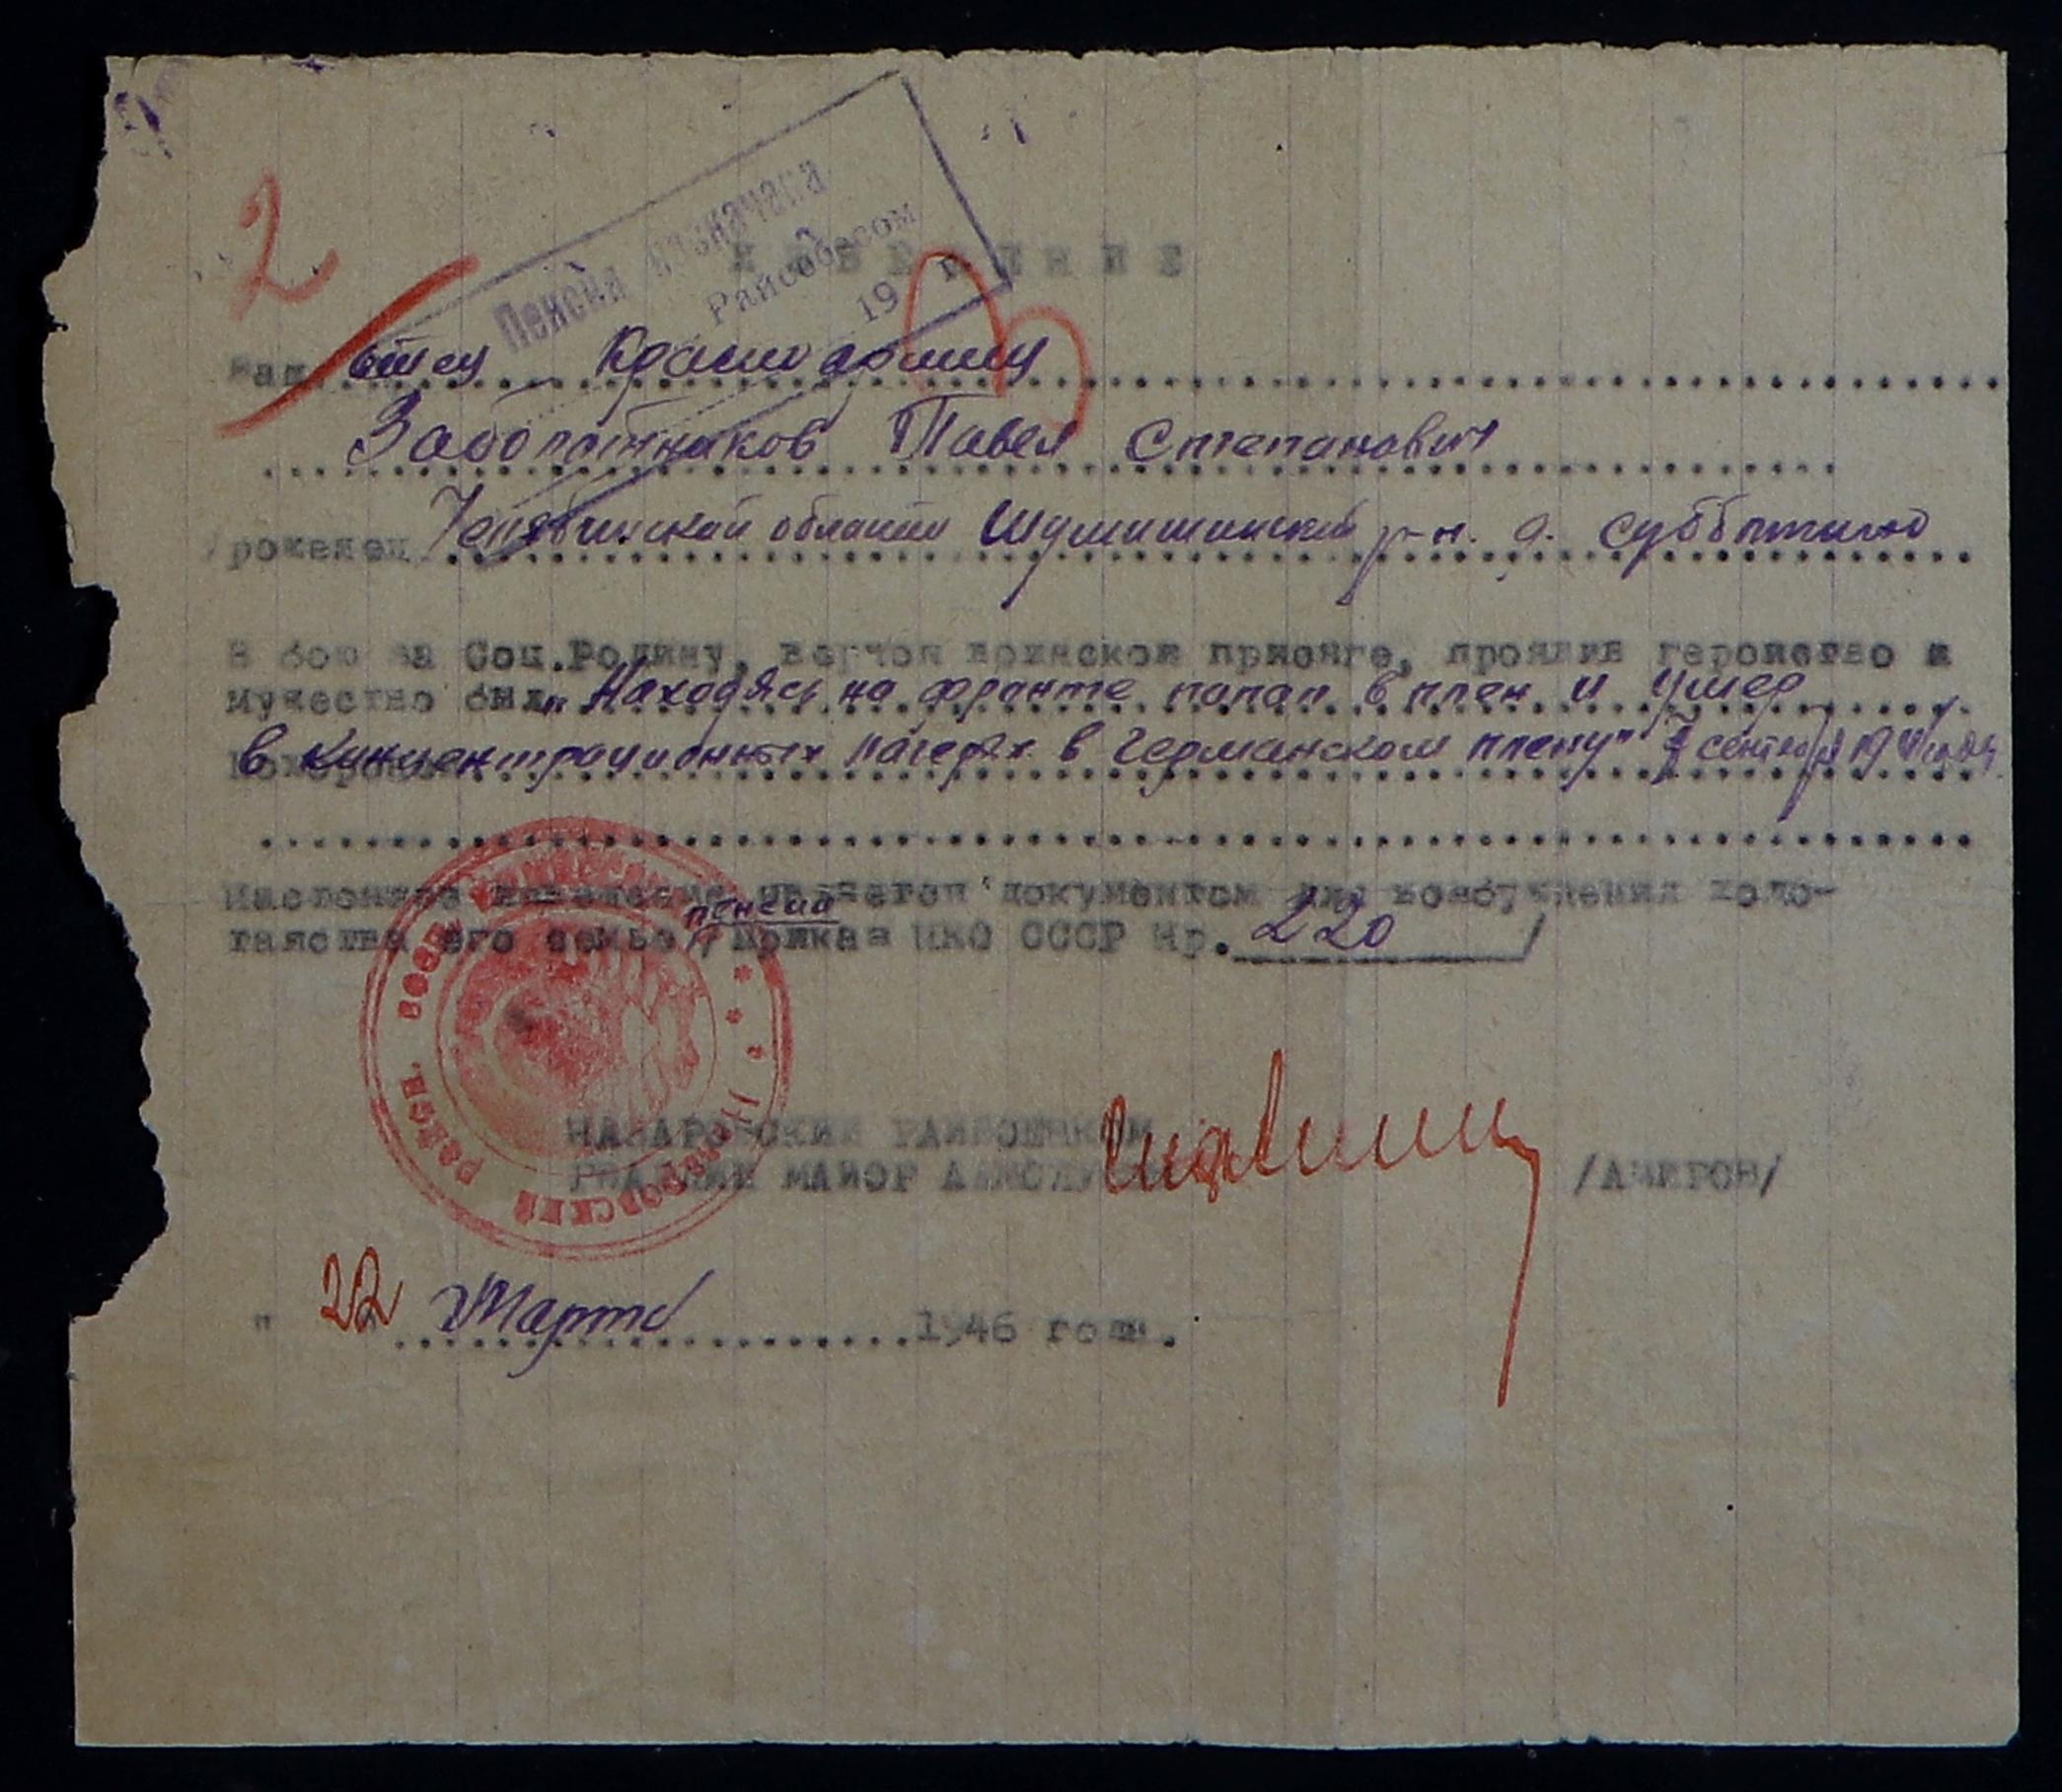 2
Пенсия назначена
Райсобесом
19 г.
ИЗВЕЩЕНИЕ
Ваш отец Красноармеец
Заболотников Павел Степанович
уроженец Челябинской области р-н. д. Субботино
В бою за Соц.Родину, верный воинской присяге, проявив геройство и
мужество был „Находясь на фронте попал в плен и умер
Похоронен в концентрационных лагерях в Германском плену" сентября 19
Настоящее извещение является документом для возбуждения хода-
тайства его семье пенсии /Приказ НКО СССР Нр. 220 /
НАЗАРОВСКИЙ РАЙВОЕНКОМ
ГВАРДИИ МАЙОР
НАЗАРОВСКИЙ
" 22 " Марта 1946 года.